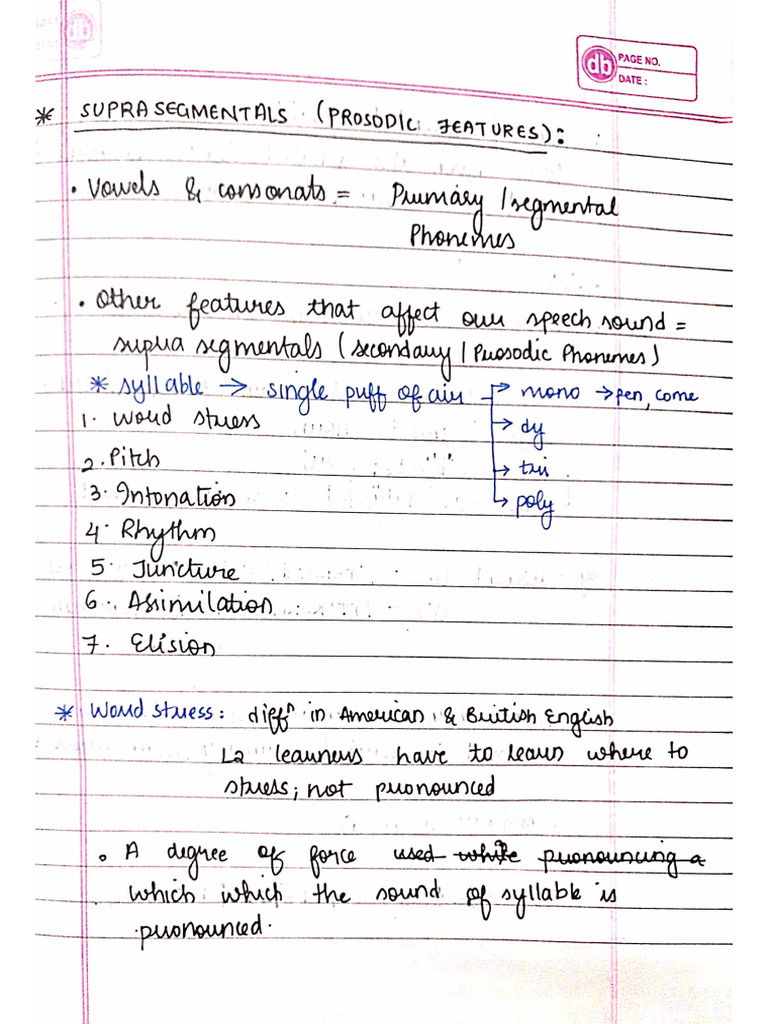 db
PAGE NO.
DATE :
* SUPRASEGMENTALS (PROSODIC FEATURES):
• Vowels & consonats = Primary / segmental
Phonemes
• Other features that affect our speech sound =
supra segmentals (secondary / Prosodic Phonemes)
* syllable → single puff of air → mono → pen, come
1. Word stress → dy
2. Pitch → tri
3. Intonation → poly
4. Rhythm
5. Juncture
6. Assimilation
7. Elision
* Word stress: diffⁿ in American & British English
L2 learners have to learn where to
stress; not pronounced
• A degree of force used while pronouncing a
which which the sound of syllable is
pronounced.